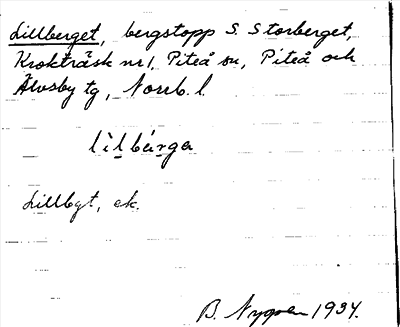 Lillberget, bergstopp S. Storberget,
Krokträsk nr 1, Piteå sn, Piteå och
Älvsby tg, Norrb. l.
lìlbárga
Lillbgt, ek.
B. Nygren 1934.